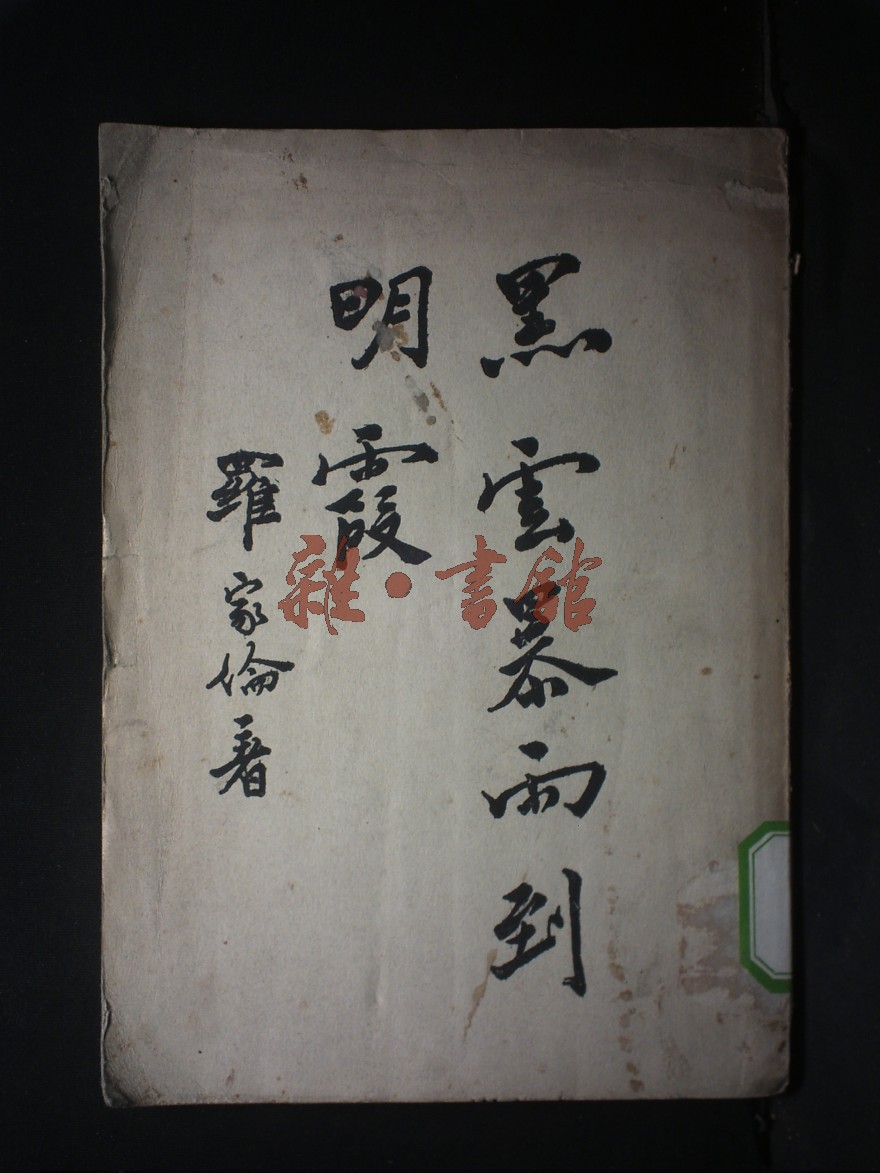 黑雲暴雨到
明霞
羅家倫著
雜·書館